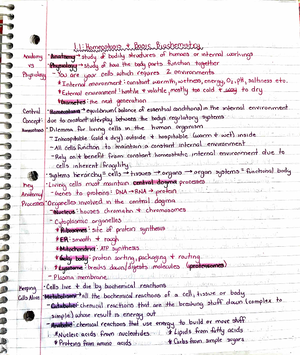 1.1 Homeostasis & Basic Biochemistry
Anatomy vs Physiology
- Anatomy - study of bodily structures of humans or internal workings
- Physiology - study of how the body parts function together
- You are your cells which requires 2 environments
* Internal environment: constant warmth, wetness, energy, O2, pH, saltiness etc.
* External environment: hostile + volatile, mostly too cold + way to dry
* Gametes: the next generation
Central Concept: Homeostasis
- Homeostasis = equilibrium (balance of essential conditions) in the internal environment
due to constant interplay between the body's regulatory systems
- Dilemma for living cells in the human organism
- Inhospitable (cold + dry) outside + hospitable (warm + wet) inside
- All cells function to maintain a constant internal environment
- Rely on + benefit from constant homeostatic internal environment due to
cells inherent fragility
- Systems hierarchy: cells → tissues → organs → organ systems = functional body
Key Anatomy Processes
- Living cells must maintain central dogma processes
- Genes to proteins: DNA → RNA → protein
- Organelles involved in the central dogma
- Nucleus: houses chromatin + chromosomes
- Cytoplasmic organelles
* Ribosomes: site of protein synthesis
* ER: smooth + rough
* Mitochondria: ATP synthesis
* Golgi body: protein sorting, packaging + routing
* Lysosome: breaks down/digests molecules
- Plasma membrane
Keeping Cells Alive
- Cells live + die by biochemical reactions
- Metabolism: all the biochemical reactions of a cell, tissue or body
- Catabolic: chemical reactions that are breaking stuff down (complex to
simple) whose result is energy out
- Anabolic: chemical reactions that use energy to build or move stuff
* Nucleic acids from nucleotides * Lipids from fatty acids
* Proteins from amino acids * Carbs from simple sugars